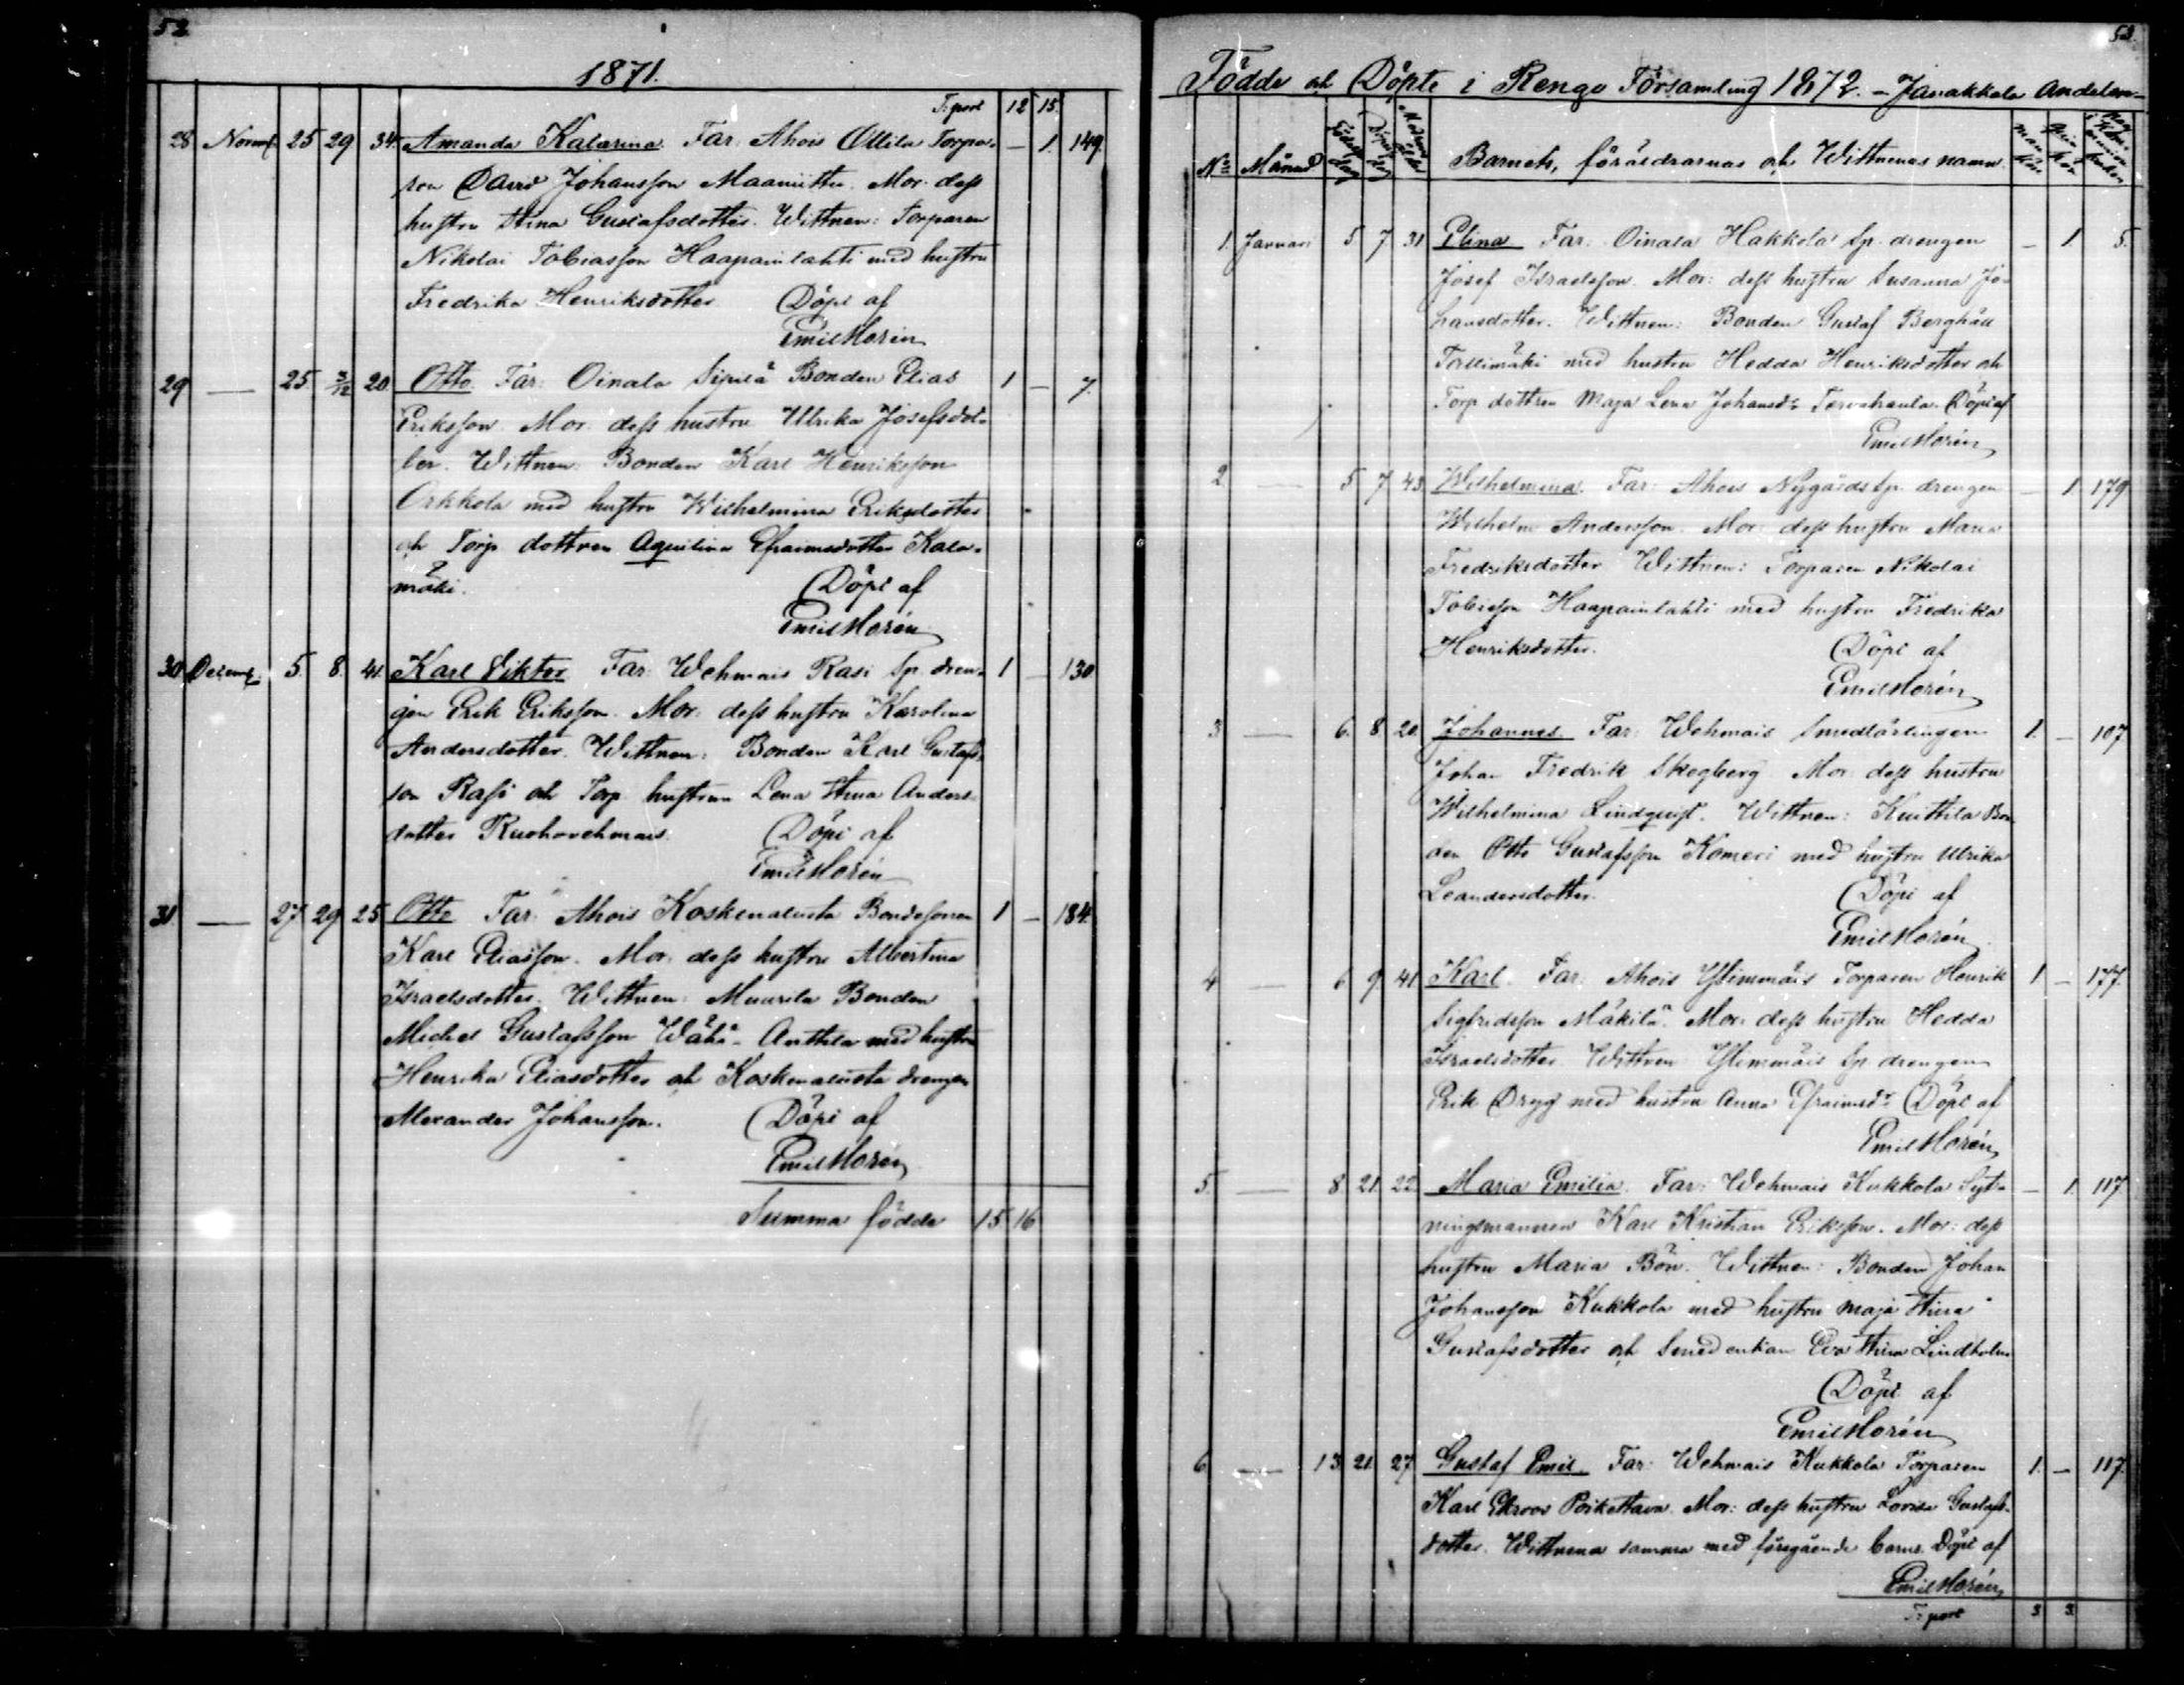 52
1871.
Tsport 12 15.
28 Novemb. 25 29 34. Amanda Katarina. Far: Ahois Ollila Torpa- — 1. 149.
ren David Johansson Maaniittu. Mor: dess
hustru Stina Gustafsdotter. Wittnen: Torparen
Nikolai Tobiasson Haapainlahti med hustru
Fredrika Henriksdotter. Döpt af
Emil Horén
29 — 25 3/12 20 Otto. Far: Oinala Sipilä Bonden Elias 1 — 7.
Eriksson. Mor: dess hustru Ulrika Josefsdot-
ter. Wittnen: Bonden Karl Henriksson
Orkkola med hustru Wilhelmina Eriksdotter
och Torp. dottren Aquilina Efraimsdotter Kala-
mäki. Döpt af
Emil Horén
30 Decemb. 5. 8. 41. Karl Viktor. Far: Wehmais Rasi Sp. dren- 1 — 130
gen Erik Eriksson. Mor: dess hustru Karolina
Andersdotter. Wittnen: Bonden Karl Gustafs-
son Rasi och Torp. hustrun Lena Stina Anders-
dotter Ruohovehmas. Döpt af
Emil Horén
31. — 27 29 25 Otto. Far: Ahois Koskenalusta Bondesonen 1 — 184.
Karl Eliasson. Mor: dess hustru Albertina
Israelsdotter. Wittnen: Muurila Bonden
Michel Gustafsson Wähä-Anttila med hustru
Henrika Eliasdotter och Koskenalusta drengen
Alexander Johansson. Döpt af
Emil Horén
Summa födda 15 16
53.
Födde och Döpte i Rengo Församling 1872. - Janakkala Andelen -
No Månad Födelse dag Döpelse dag Modrens ålder Barnets, föräldrarnas och Wittnenas namn. man kön qvin kön
1. Januari 5 7 31 Elina. Far: Oinala Hakkola Sp. drengen — 1. 5.
Josef Israelsson. Mor: dess hustru Susanna Jo-
hansdotter. Wittnen: Bonden Gustaf Berghäll
Tallimäki med hustru Hedda Henriksdotter och
Torp. dottren Maja Lena Johansdr Tervahauta. Döpt af
Emil Horén
2 — 5 7 43 Wilhelmina. Far: Ahois Nygårds Sp. drengen — 1 179
Wilhelm Andersson. Mor: dess hustru Maria
Fredriksdotter. Wittnen: Torparen Nikolai
Tobiasson Haapainlahti med hustru Fredrika
Henriksdotter. Döpt af
Emil Horén
3 — 6. 8. 20 Johannes. Far: Wehmais Smedlärlingen 1. — 107
Johan Fredrik Skogberg. Mor: dess hustru
Wilhelmina Lindqvist. Wittnen: Kuittila Bon-
den Otto Gustafsson Komeri med hustru Ulrika
Leandersdotter. Döpt af
Emil Horén
4 — 6 9 41 Karl. Far: Ahois Ylimmäis Torparen Henrik 1 — 177.
Sigfridsson Mäkilä. Mor: dess hustru Hedda
Israelsdotter. Wittnen: Ylimmäis Sp. drengen
Erik Dryg med hustru Anna Efraimsdr. Döpt af
Emil Horén
5. — 8 21. 22 Maria Emilia. Far: Wehmais Kukkola Syt- — 1. 117
ningsmannen Karl Kristian Eriksson. Mor: dess
hustru Maria Bön. Wittnen: Bonden Johan
Johansson Kukkola med hustru Maja Stina
Gustafsdotter och Smedenkan Eva Stina Lindholm
Döpt af
Emil Horén
6. — 13 21. 27 Gustaf Emil. Far: Wehmais Kukkola Torparen 1. — 117.
Karl Ekroos Poikettava. Mor: dess hustru Lovisa Gustafs-
dotter. Wittnena samma med föregående barns. Döpt af
Emil Horén
Tsport 3 3.